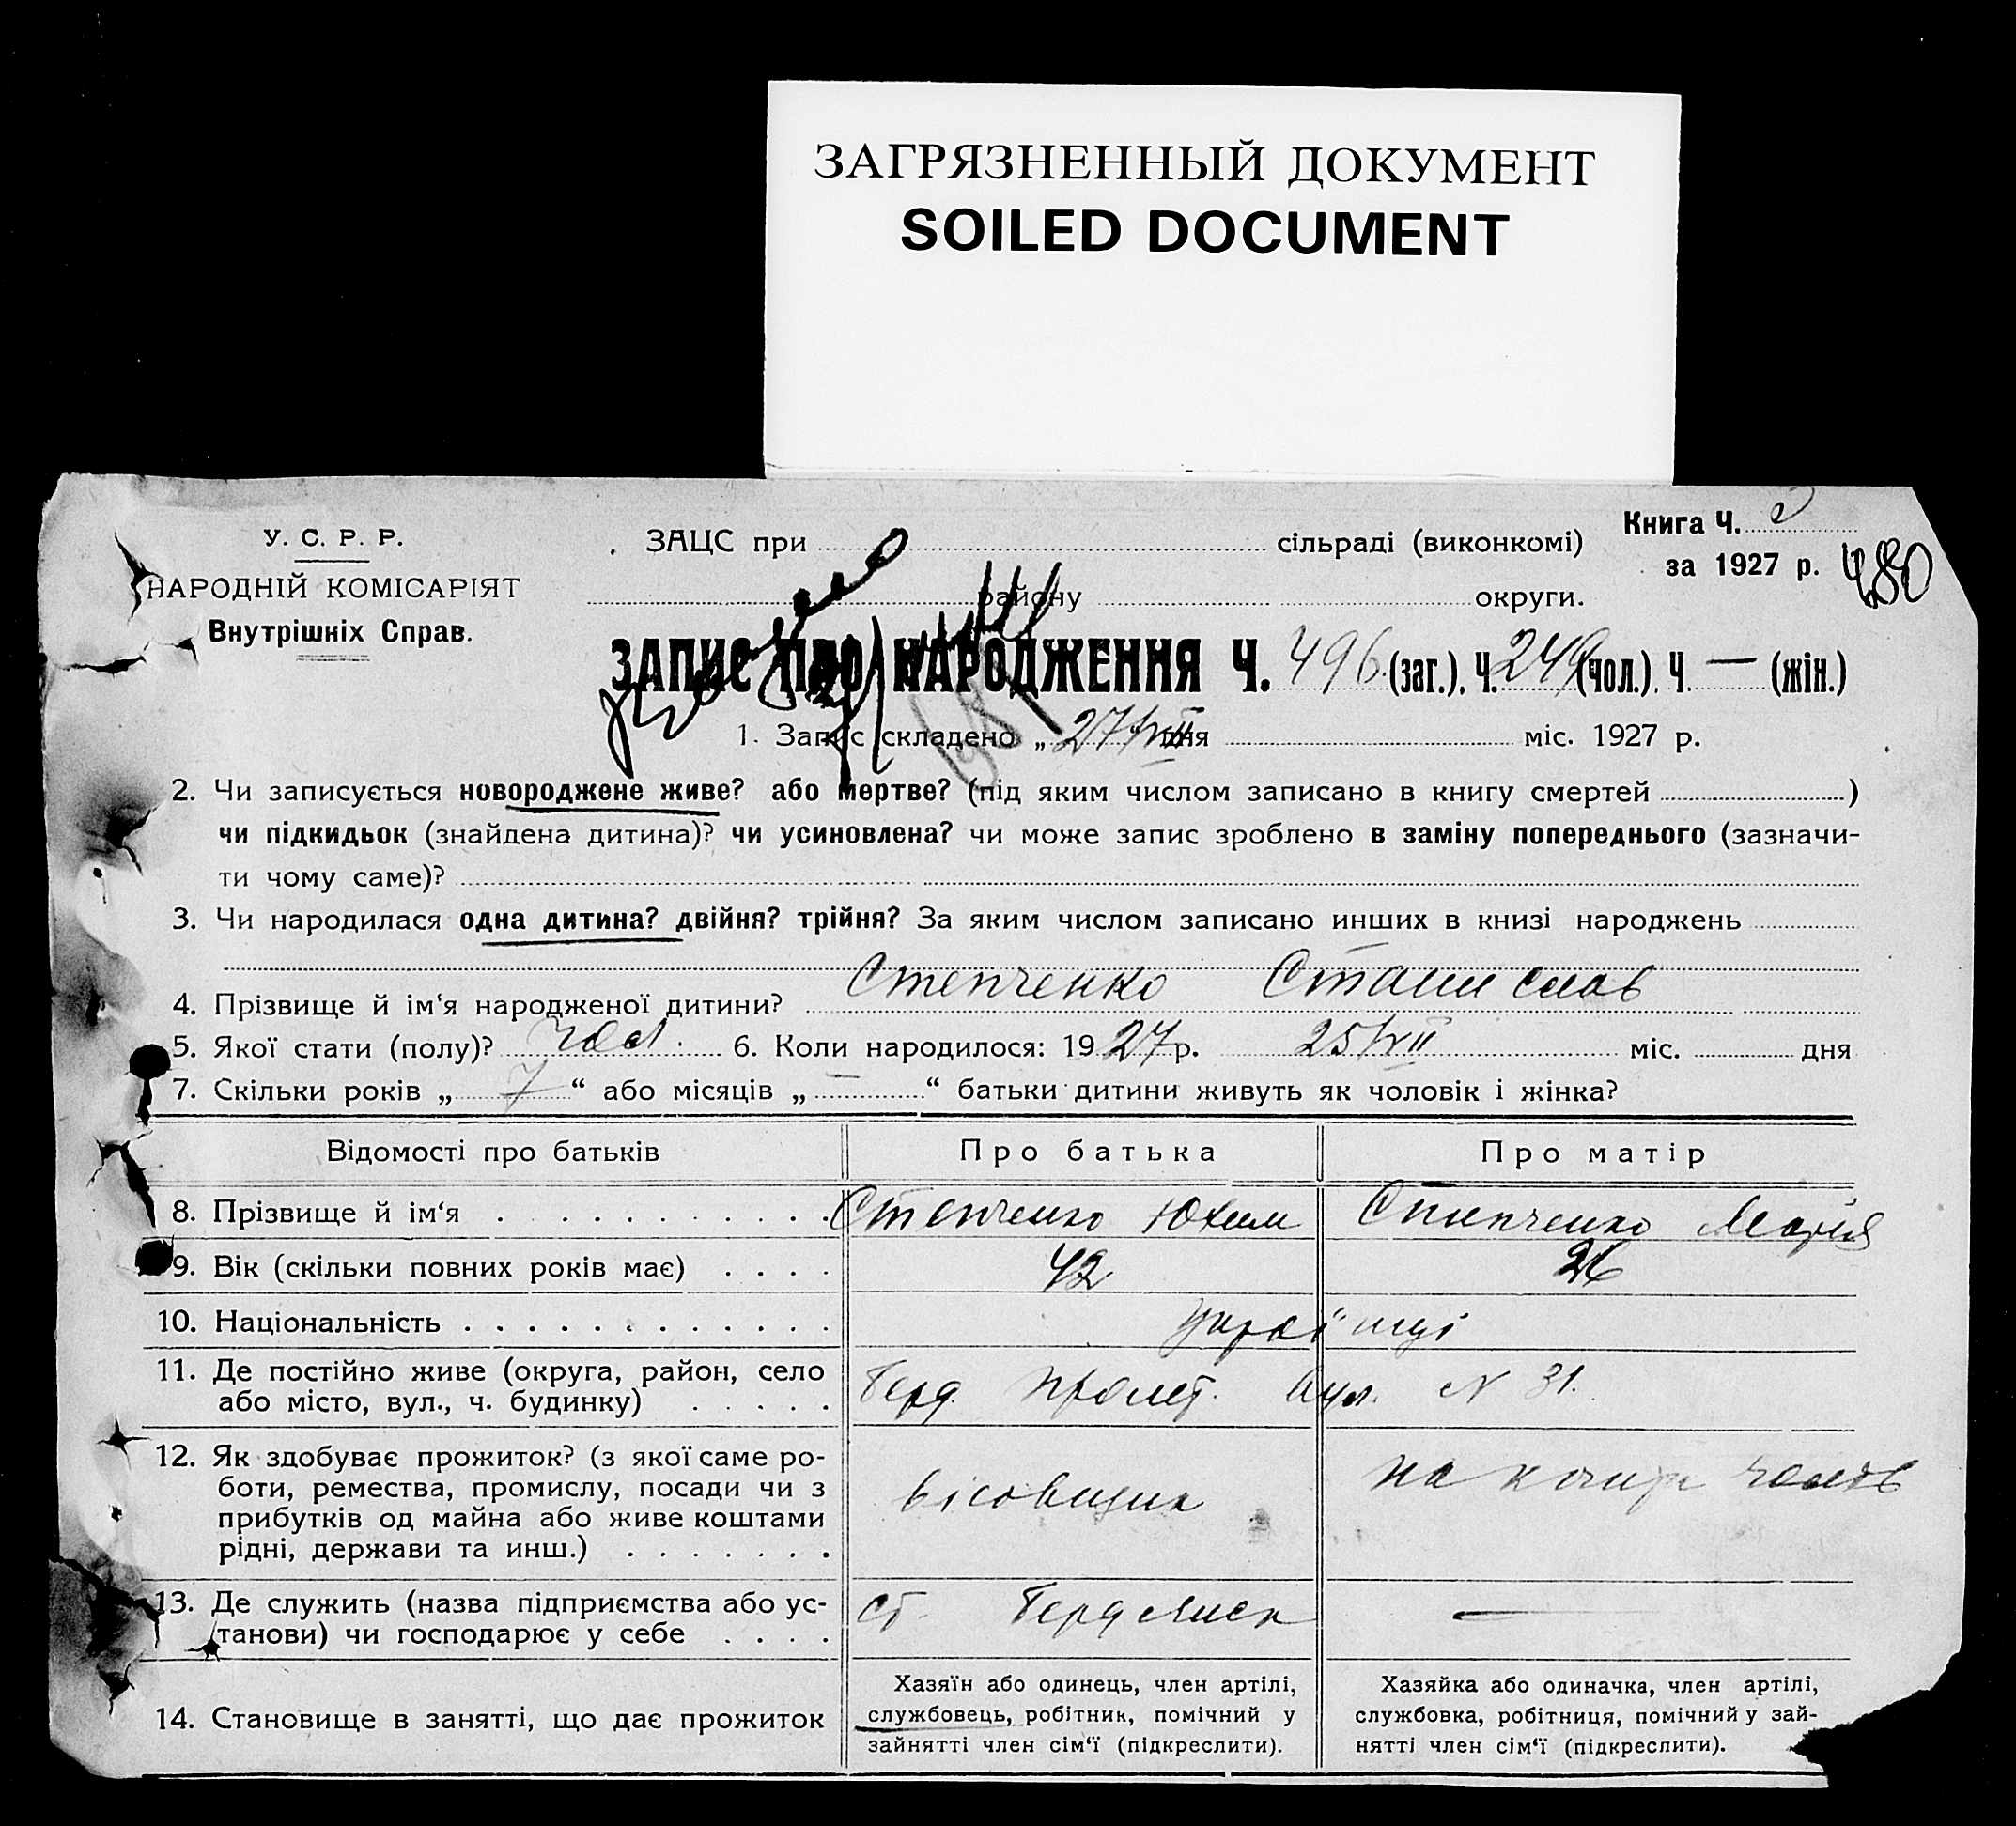 ЗАГРЯЗНЕННЫЙ ДОКУМЕНТ
SOILED DOCUMENT
У. С. Р. Р.
НАРОДНІЙ КОМІСАРІЯТ
Внутрішніх Справ.
ЗАЦС при сільраді (виконкомі)
Книга Ч.
за 1927 р. 480
району округи.
ЗАПИС ПРО НАРОДЖЕННЯ Ч. 496 (заг.). Ч. 249 (чол.). Ч. — (жін.)
1. Запис складено „ 27/VIII дня міс. 1927 р.
2. Чи записується новороджене живе? або мертве? (під яким числом записано в книгу смертей )
чи підкидьок (знайдена дитина)? чи усиновлена? чи може запис зроблено в заміну попереднього (зазначи-
ти чому саме)?
3. Чи народилася одна дитина? двійня? трійня? За яким числом записано инших в книзі народжень
4. Прізвище й ім'я народженої дитини? Степченко Станислав
5. Якої стати (полу)? чол. 6. Коли народилося: 1927 р. 25/VII міс. дня
7. Скільки років „ 7 “ або місяців „ — “ батьки дитини живуть як чоловік і жінка?
Відомості про батьків Про батька Про матір
8. Прізвище й ім'я . . . . . . . . . . Степченко Юхим Степченко Марія
9. Вік (скільки повних років має) . . . . 42 26
10. Національність . . . . . . . . . . . . українці
11. Де постійно живе (округа, район, село
або місто, вул., ч. будинку) . . . . . Берд. Пролет. вул. N 31.
12. Як здобуває прожиток? (з якої саме ро-
боти, ремества, промислу, посади чи з
прибутків од майна або живе коштами
рідні, держави та инш.) . . . . . . .
вісовщик
на кошти чолов
13. Де служить (назва підприємства або ус-
танови) чи господарює у себе . . . .
ст. Бердянськ —
14. Становище в занятті, що дає прожиток
Хазяїн або одинець, член артілі,
службовець, робітник, помічний у
зайнятті член сім'ї (підкреслити).
Хазяйка або одиначка, член артілі,
службовка, робітниця, помічний у зай-
нятті член сім'ї (підкреслити).